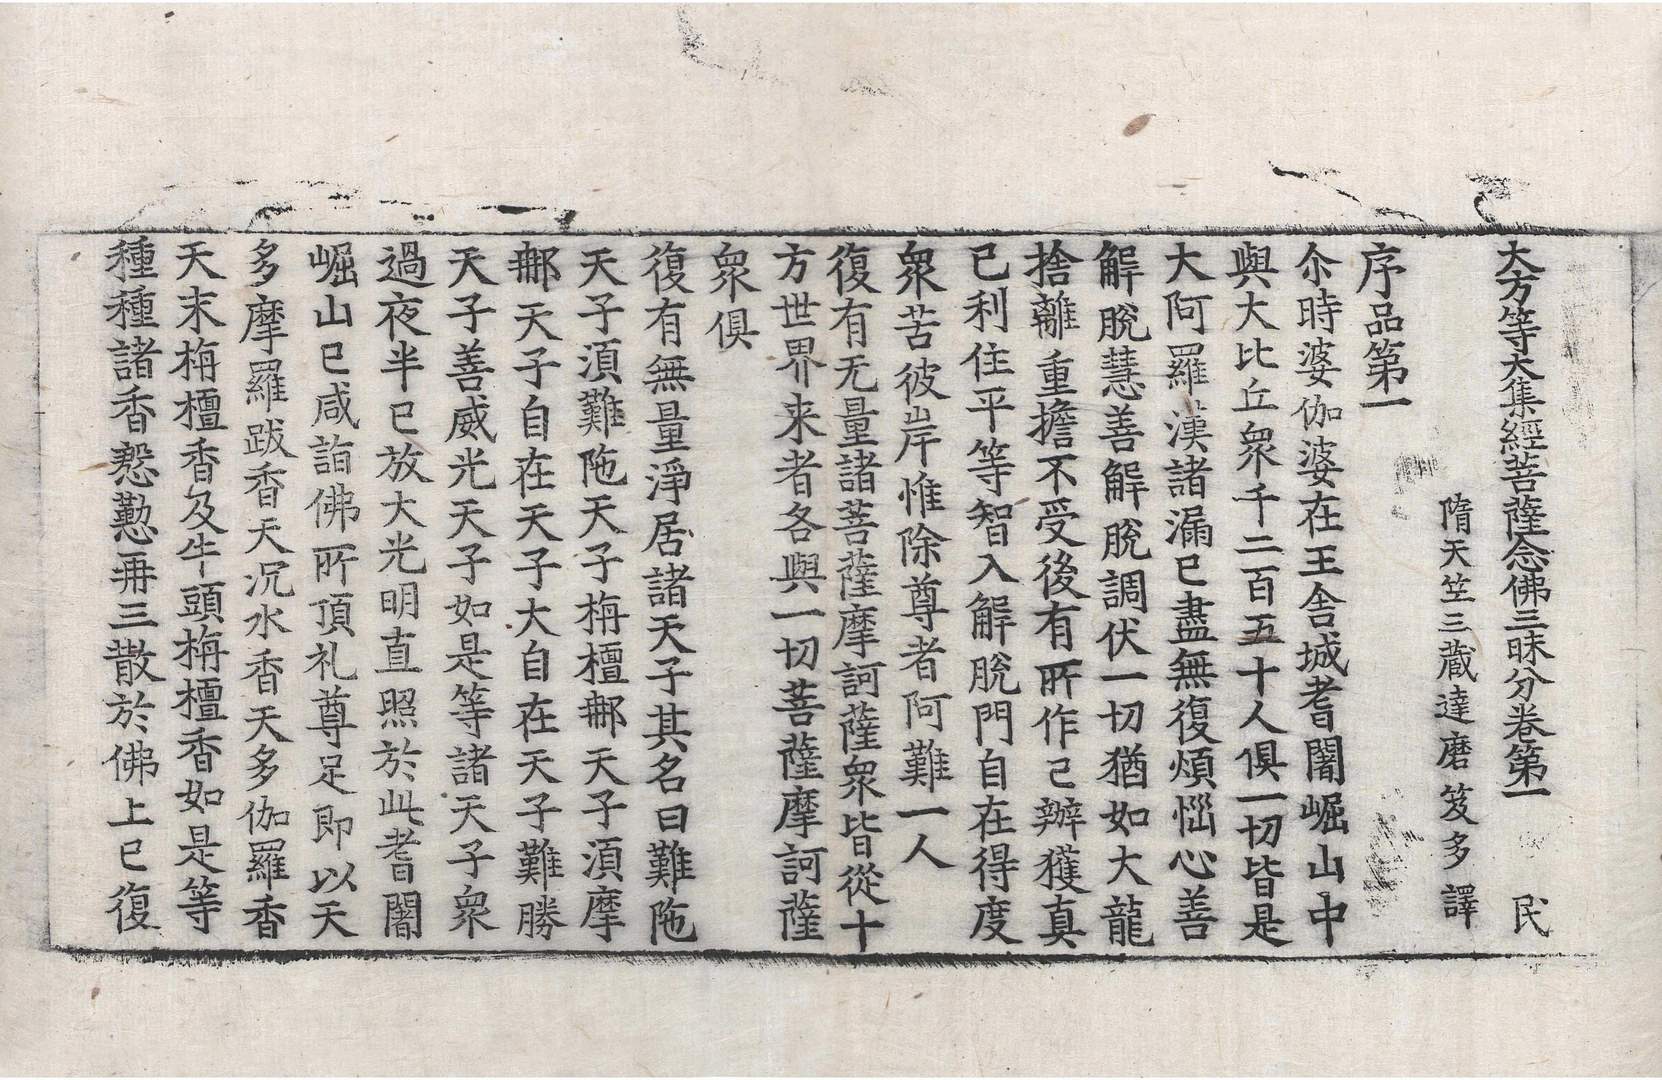 大方等大集經菩薩念佛三昧分卷第一 民
隋天竺三藏達磨笈多譯
序品第一
尒時婆伽婆在王舍城耆闍崛山中
與大比丘衆千二百五十人俱一切皆是
大阿羅漢諸漏已盡無復煩惱心善
解脫慧善解脫調伏一切猶如大龍
捨離重擔不受後有所作已辦獲真
己利住平等智入解脫門自在得度
衆苦彼岸惟除尊者阿難一人
復有无量諸菩薩摩訶薩衆皆從十
方世界来者各與一切菩薩摩訶薩
衆俱
復有無量淨居諸天子其名曰難陁
天子須難陁天子栴檀那天子須摩
那天子自在天子大自在天子難勝
天子善威光天子如是等諸天子衆
過夜半已放大光明直照於此耆闍
崛山已咸詣佛所頂礼尊足即以天
多摩羅跋香天沉水香天多伽羅香
天末栴檀香及牛頭栴檀香如是等
種種諸香慇懃再三散於佛上已復